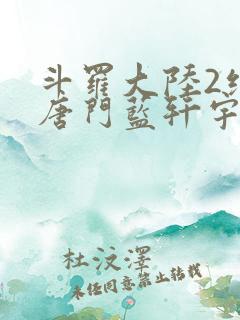 斗羅大陸2絕
唐門藍軒宇
杜汶澤
未經同意禁止轉載